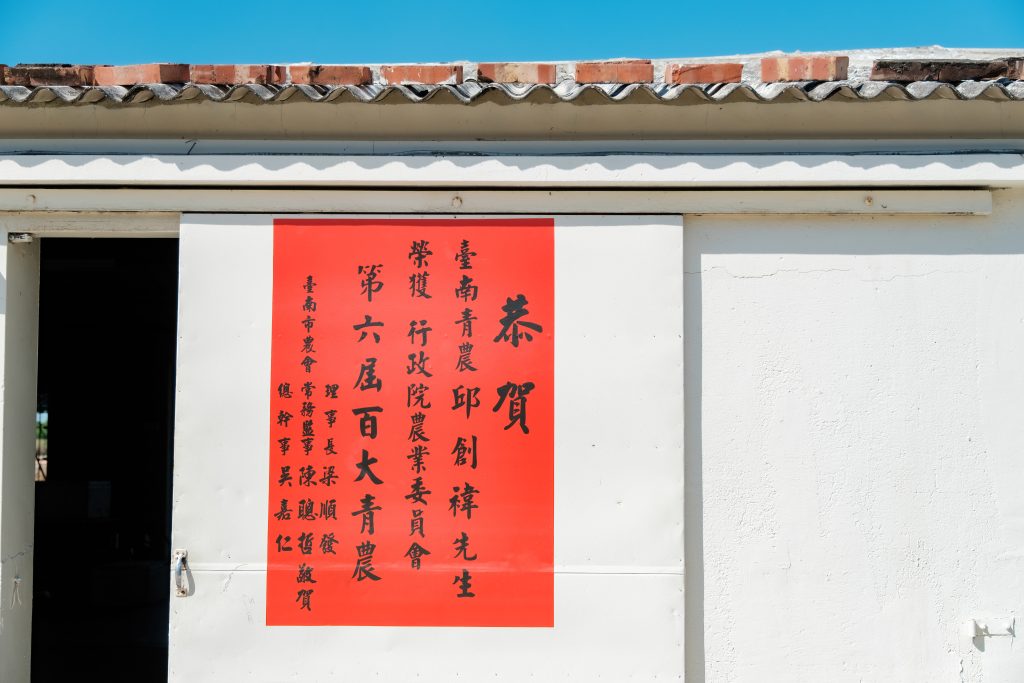 恭賀
臺南青農邱創褘先生
榮獲行政院農業委員會
第六屆百大青農
臺南市農會
理事長梁順發
常務監事陳聰哲敬賀
總幹事吳嘉仁